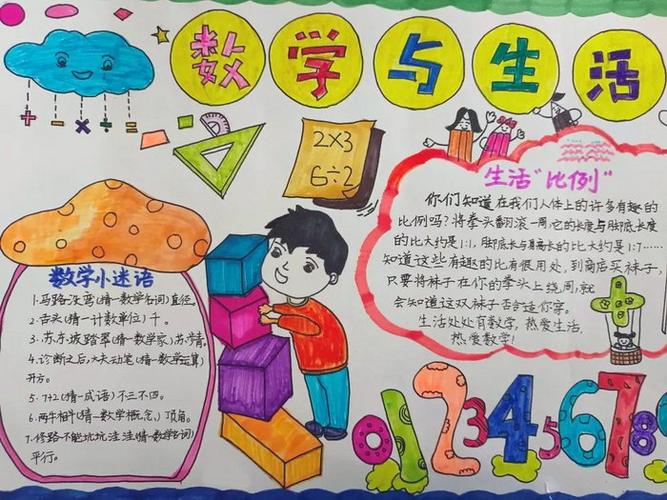 数学与生活
+ - × ÷ =
2×3
6÷2
生活"比例"
你们知道在我们人体上的许多有趣的
比例吗?将拳头翻滚一周,它的长度与脚底长度
的比大约是1:1,脚底长与身高长的比大约是1:7……
知道这些有趣的比有很用处,到商店买袜子,
只要将袜子在你的拳头上绕周,就
会知道这双袜子否合适你穿.
生活处处有数学,热爱生活,
热爱数学!
数学小迷语
1.马路没弯(猜一数学名词)直径.
2.舌头(猜一计数单位)千.
3.苏东坡踏翠(猜一数学家)苏步青.
4.诊断之后,大夫动笔(猜一数学运算)
开方.
5.7÷2(猜一成语)不三不四.
6.两牛相斗(猜一数学概念)顶角.
7.修路不能坑坑洼洼(猜一数学名词)
平行.
012345678